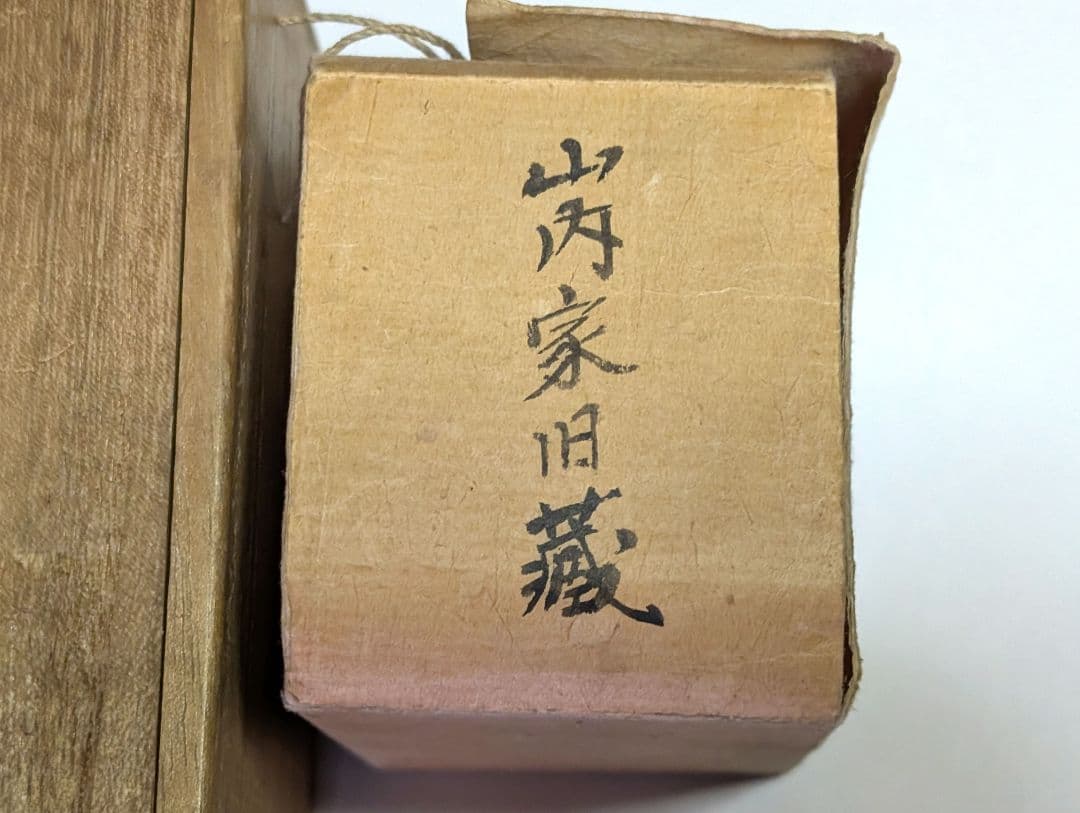 山内家旧蔵